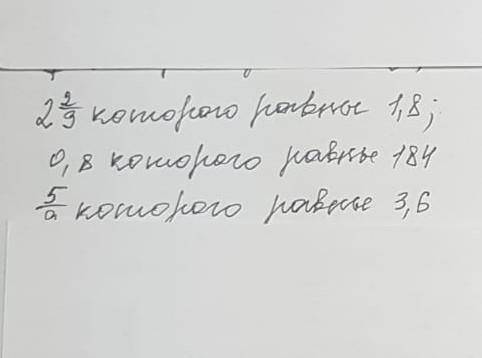 2 2/9 которого равны 1,8;
0,8 которого равны 184
5/9 которого равны 3,6